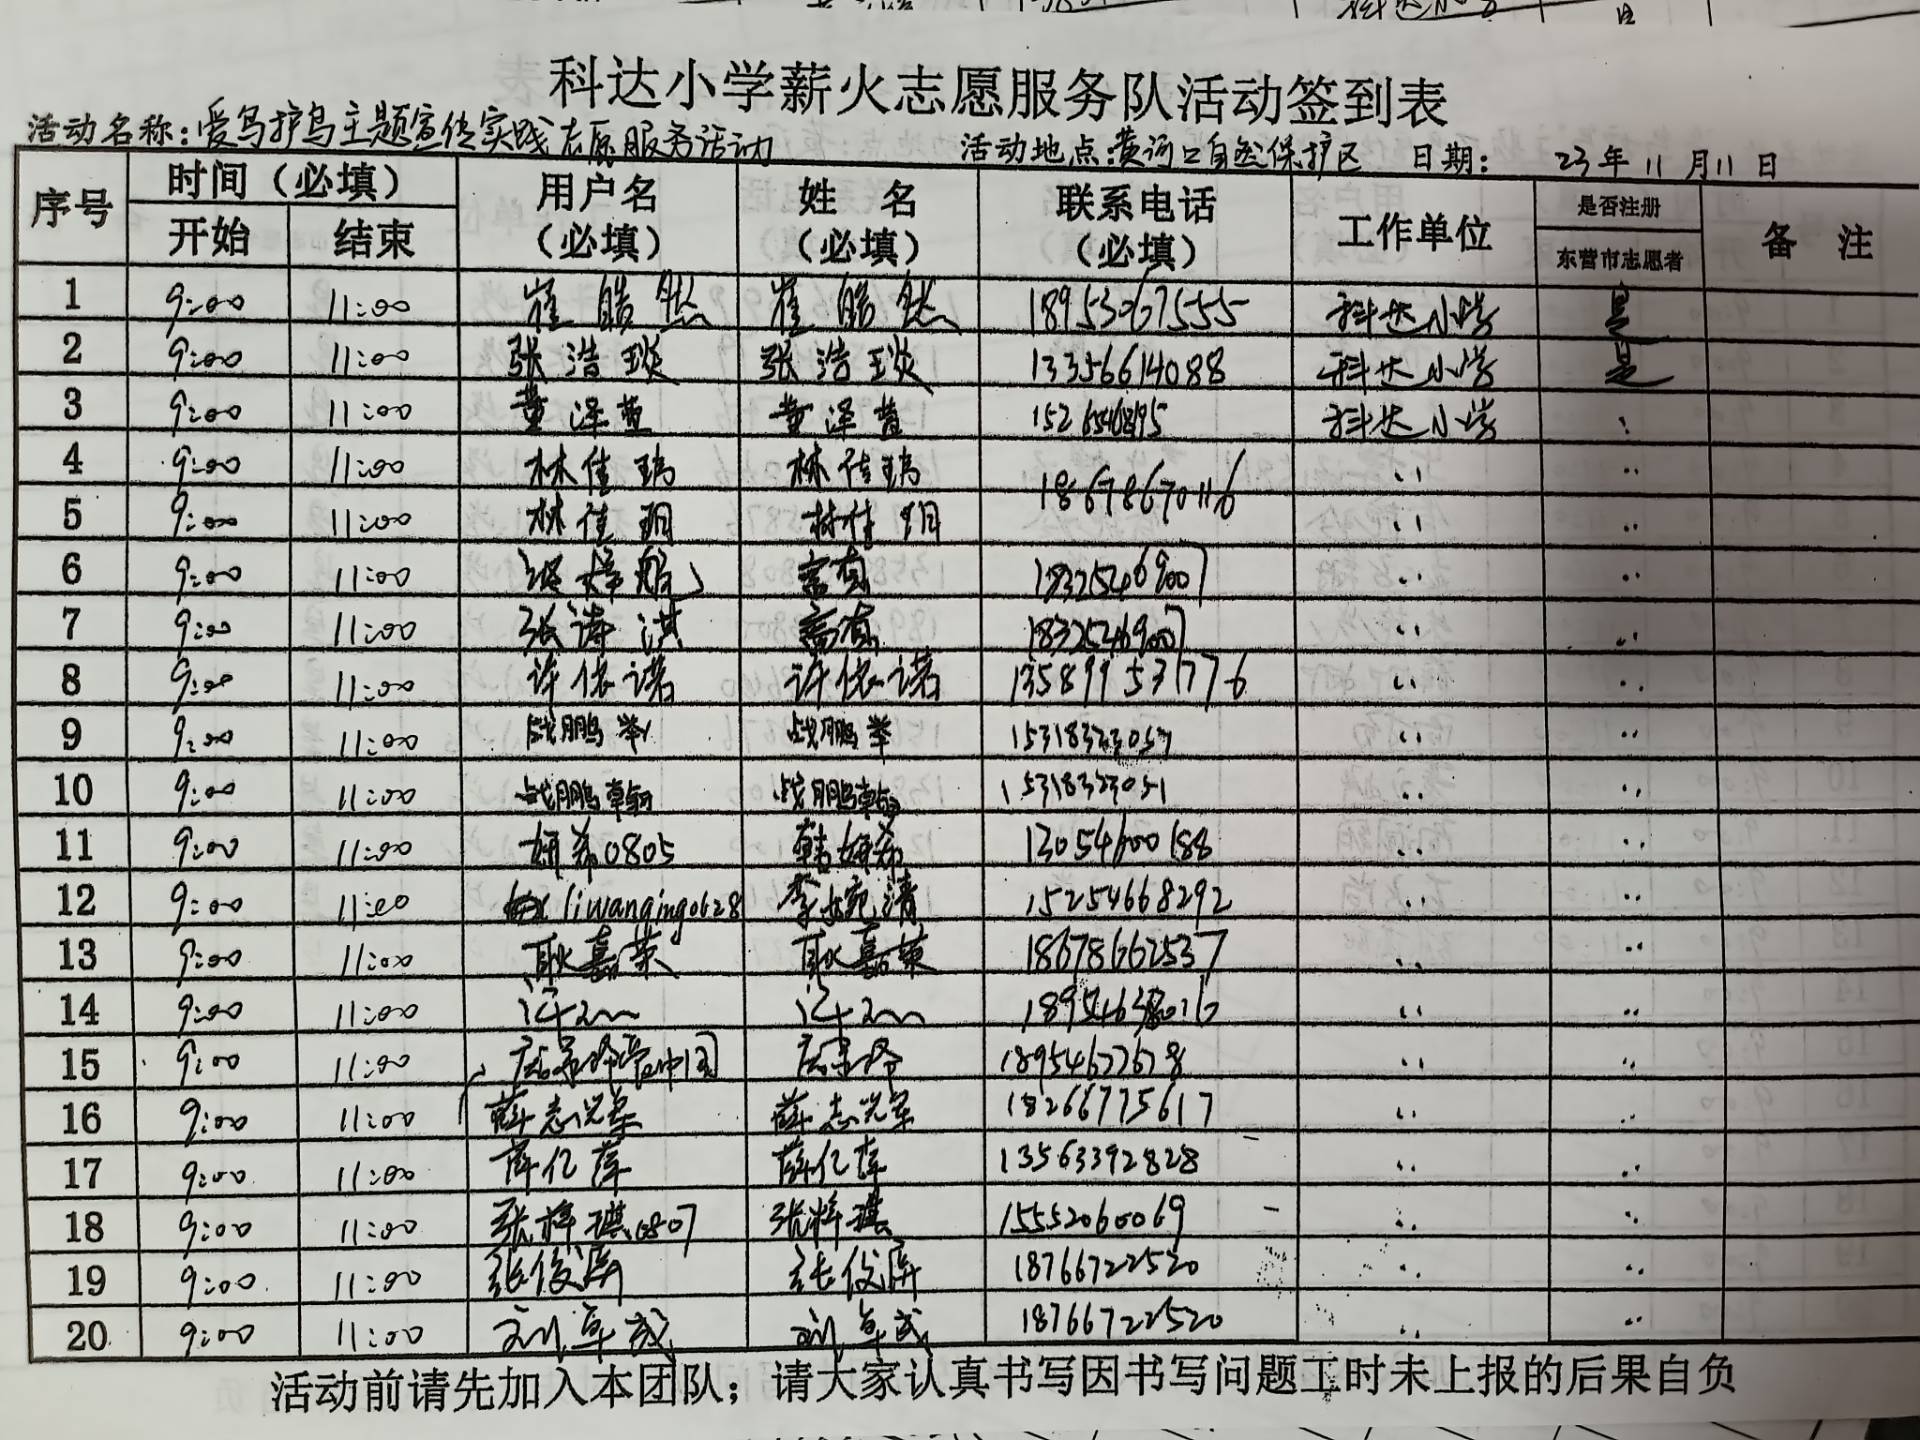 科达小学薪火志愿服务队活动签到表
活动名称：爱鸟护鸟主题宣传实践志愿服务活动 活动地点：黄河口自然保护区 日期： 23年11月11日
序号 时间（必填） 用户名（必填） 姓 名（必填） 联系电话（必填） 工作单位 是否注册 备 注
开始 结束 东营市志愿者
1 9:00 11:00 崔皓然 崔皓然 18953067555 科达小学 是
2 9:00 11:00 张浩琰 张浩琰 13356614088 科达小学 是
3 9:00 11:00 董泽萱 董泽萱 科达小学
4 9:00 11:00 林佳瑀 林佳瑀 18678670116 ..
5 9:00 11:00 林佳玥 林佳玥 ..
6 9:00 11:00 18325469007 ..
7 9:00 11:00 张涛洪 18325469007 ..
8 9:00 11:00 许依诺 许依诺 ..
9 9:00 11:00 战鹏举 战鹏举 ..
10 9:00 11:00 战鹏翰 战鹏翰 15318323051 ..
11 9:00 11:00 妍希0805 韩妍希 13054600188 ..
12 9:00 11:00 liwanqing0628 李婉清 15254668292 ..
13 9:00 11:00 耿嘉荣 耿嘉荣 18678662537 ..
14 9:00 11:00 ..
15 9:00 11:00 18954677678 ..
16 9:00 11:00 薛志 薛志 18266775617 ..
17 9:00 11:00 薛亿萍 薛亿萍 13563392828 ..
18 9:00 11:00 张梓琪0807 张梓琪 15552060069 ..
19 9:00 11:00 张俊 张俊 18766722520 ..
20 9:00 11:00 刘卓成 刘卓成 18766722520 ..
活动前请先加入本团队；请大家认真书写因书写问题工时未上报的后果自负